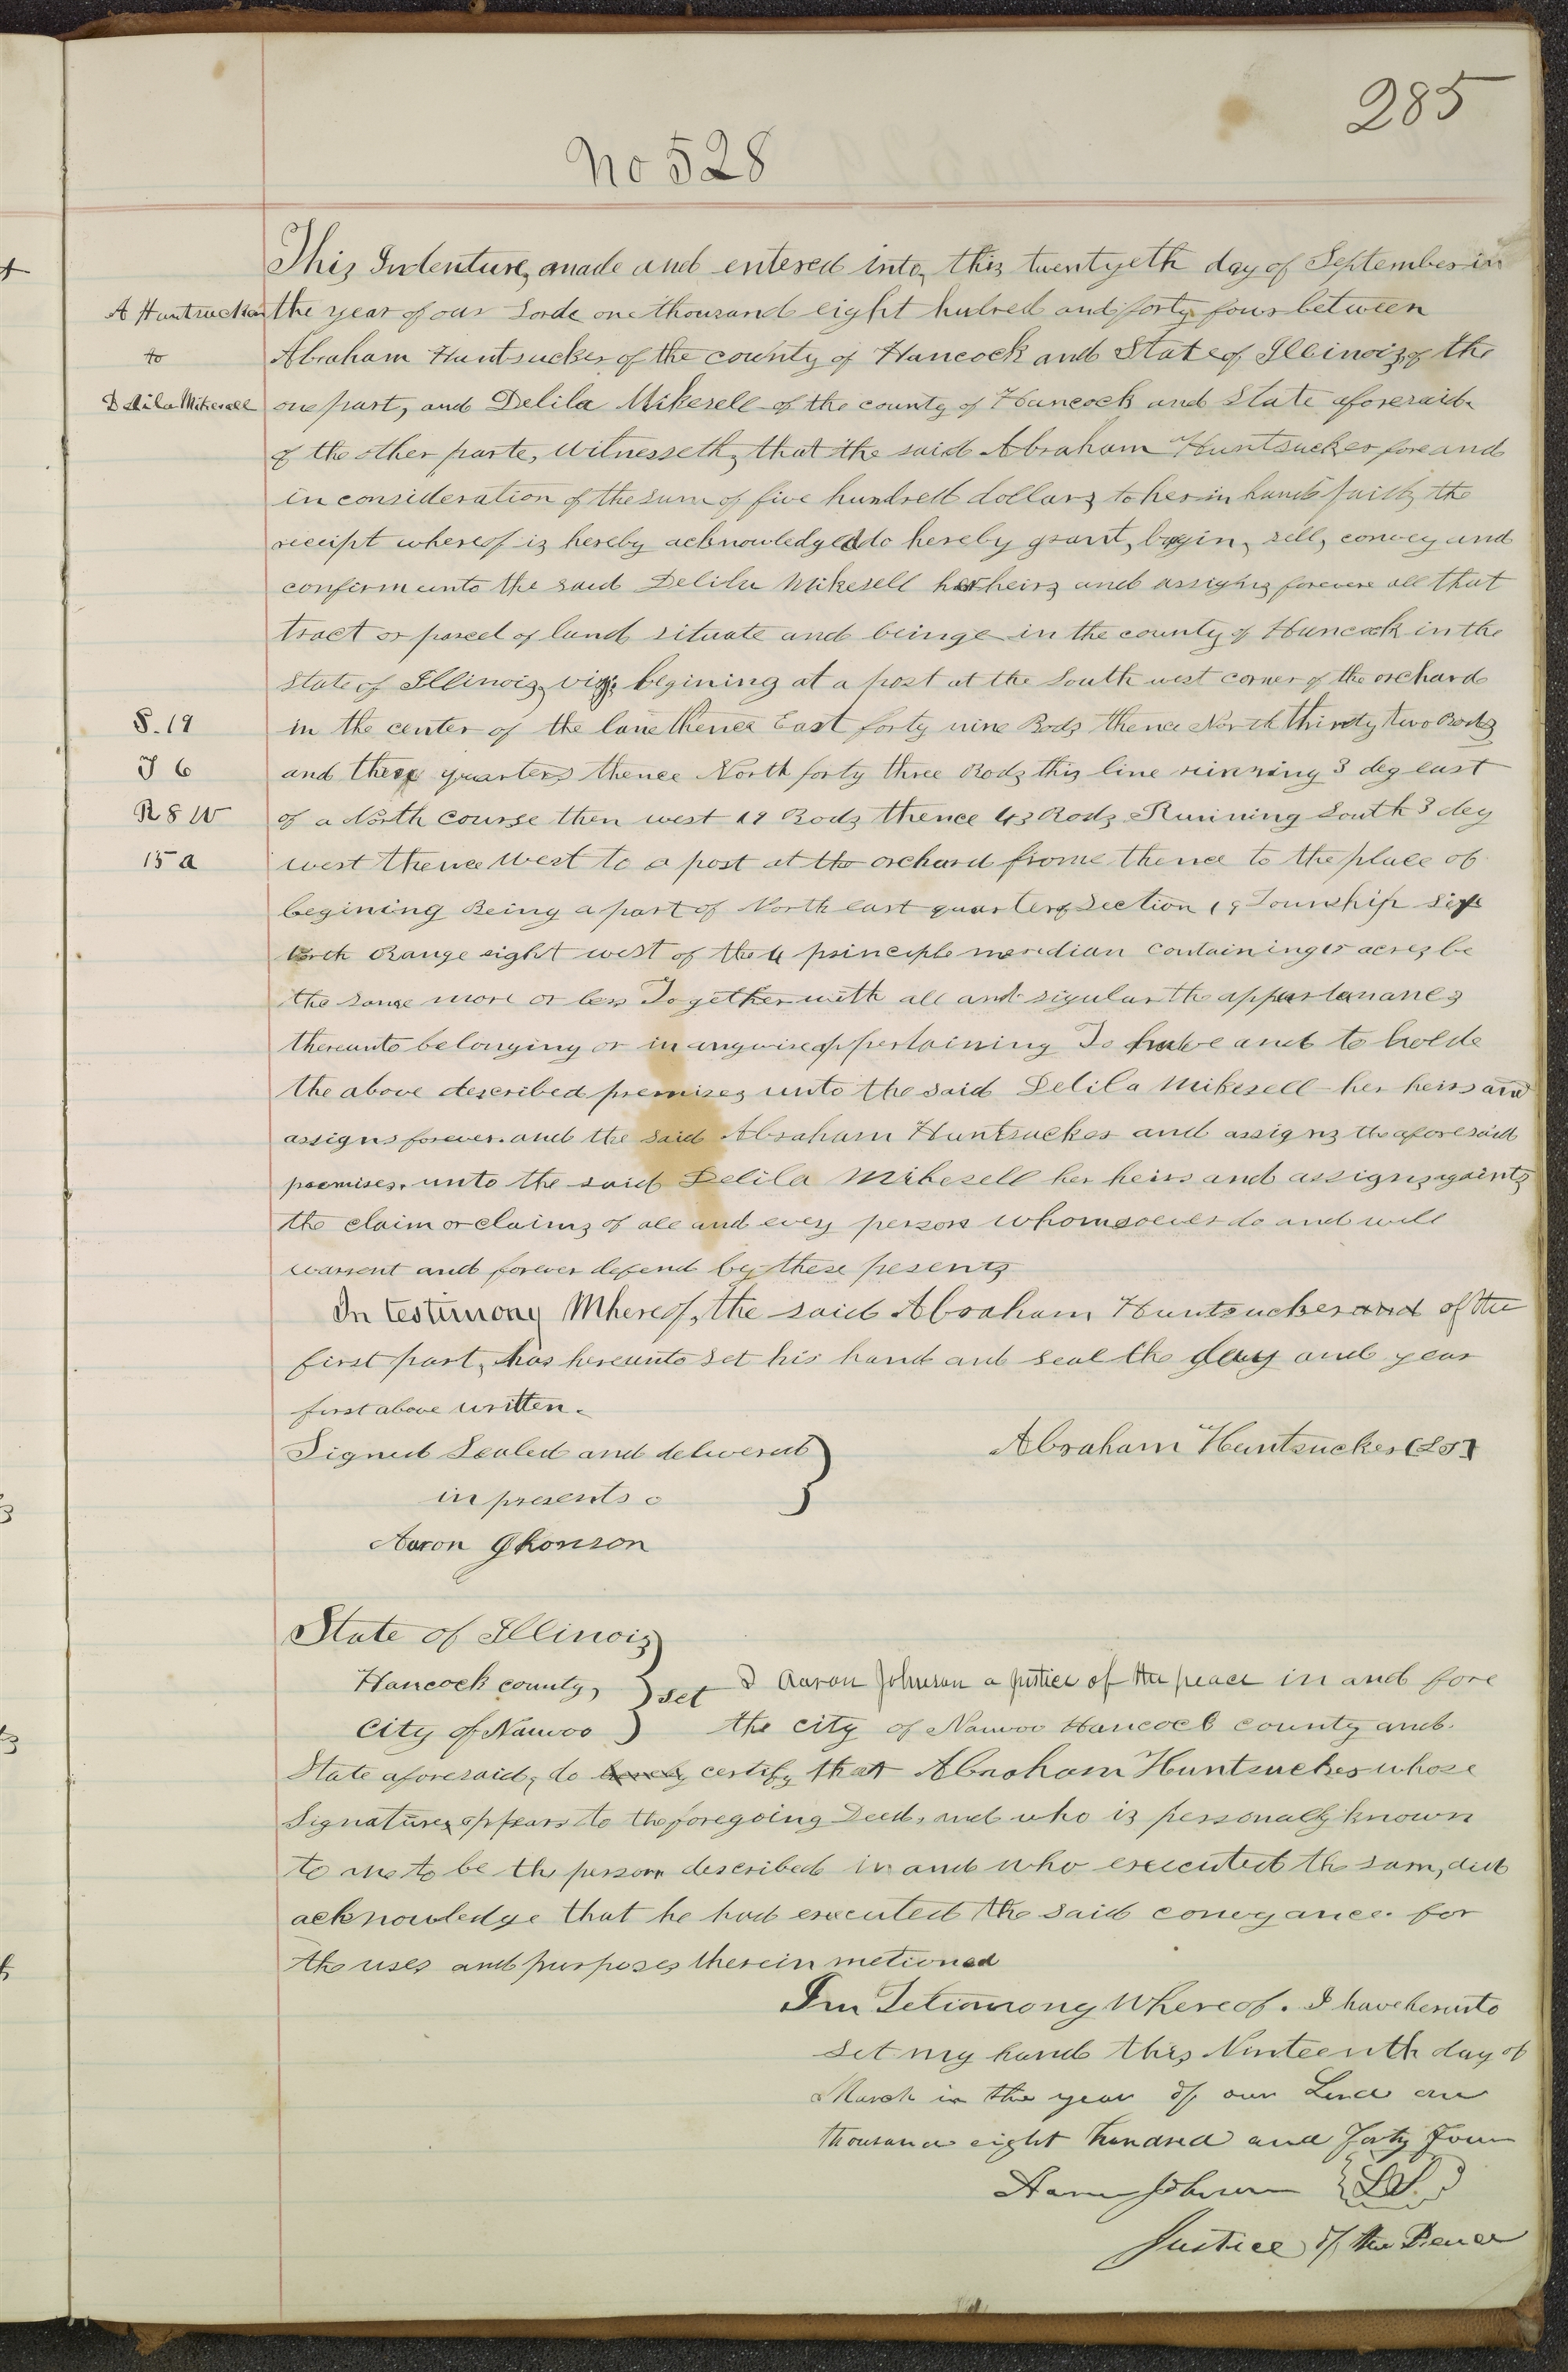 285
No 528
This Indenture, made and entered into, this twentyeth day of September in
A Huntsucker the year of our Lorde one thousand eight hudred and forty four between
to Abraham Huntsucker of the county of Hancock and State of Illinois, of the
Delila Mikesell one part, and Delila Mikesell of the county of Hancock and State aforesaid
of the other parte, Witnesseth, that the said Abraham Huntsucker fore and
in consideration of the sum of five hundred dollars to her in hand paid, the
receipt whereof is hereby acknowledged do hereby grant, bargin, sell, convey and
confirm unto the said Delila Mikesell her heirs and assigns forevere all that
tract or parcel of land situate and beinge in the county of Hancock in the
State of Illinois, viz; begining at a post at the South west corner of the orchard
S. 19 in the center of the lane thence East forty nine Rods thence North thirty two Rods
T 6 and three quarters thence North forty three Rods this line running 3 deg east
R 8 W of a North course then west 19 Rods thence 43 Rods Running South 3 deg
15 a west thence West to a post at the orchard frome thence to the place of
begining Being a part of North east quarter of Section 19 Township Six
North Range eight west of the 4 principle meridian containing 15 acres be
the same more or less Together with all and sigular the appartanances
thereunto belonging or in anywise appertaining To have and to holde
the above described premises unto the said Delila Mikesell her heirs and
assigns forever. and the said Abraham Huntsucker and assigns the aforesaid
premises. unto the said Delila Mikesell her heirs and assigns againts
the claim or claims of all and every person whomsoever do and will
warrent and forever defend by these pesents
In testimony Whereof, the said Abraham Huntsucker and of the
first part, has hereunto set his hand and seal the day and year
first above written.
Signed Sealed and delivered } Abraham Huntsucker (LS)
in presents o
Aaron Jhonson
State of Illinois
Hancock county, } set I Aaron Johnson a justice of the peace in and fore
City of Nauvoo the city of Nauvoo Hancock county and
State aforesaid, do certify that Abraham Huntsucker whose
Signatures appears to the foregoing Deed, and who is personally known
to me to be the person described in and who executed the sam, did
acknowledge that he had executed the said conveyance. for
the uses and purposes therein metioned
Inn Tetimony Whereof. I have herunto
set my hand this Ninteenth day of
March in the year of our Lord one
thousand eight hundred and forty four
Aaron Johnson {LS}
Justice of the Peace